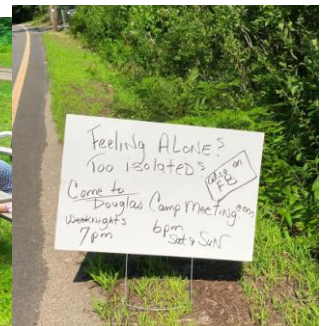 Feeling ALONE?
Too isolated?
also on
FB
Come to
Douglas Camp Meeting
Weeknights
7pm
6pm
Sat & Sun